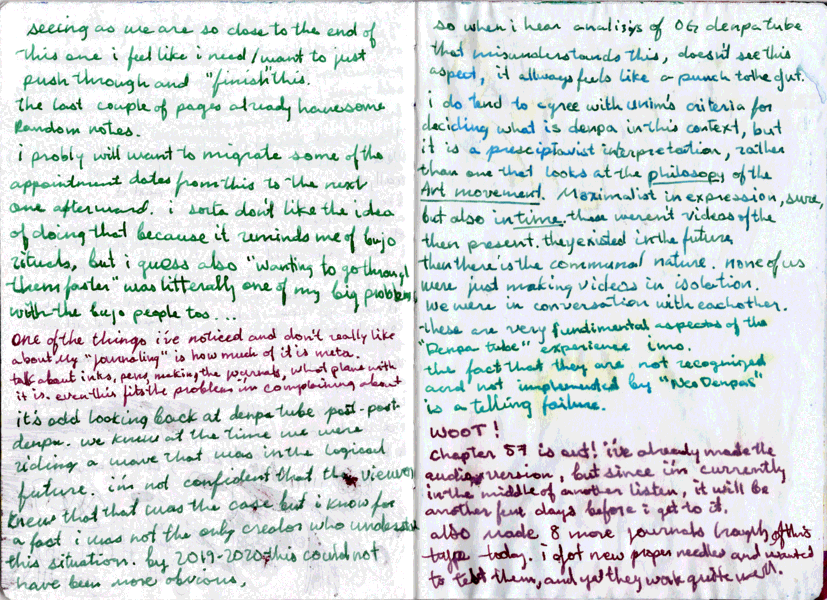 seeing as we are so close to the end of
this one i feel like i need/want to just
push through and "finish" this.
the last couple of pages already have some
random notes.
i probly will want to migrate some of the
appointment dates from this to the next
one afterward. i sorta don't like the idea
of doing that because it reminds me of bujo
rituals, but i guess also "wanting to go through
them faster" was litterally one of my big problems
with the bujo people too...
one of the things i've noticed and don't really like
about my "journaling" is how much of it is meta.
talk about inks, pens, making the journals, what plans with
it is. even this fits the problem i'm complaining about
it's odd looking back at denpa tube post-post-
denpa. we knew at the time we were
riding a wave that was in the logical
future. i'm not confident that the viewers
knew that that was the case but i know for
a fact i was not the only creator who understood
this situation. by 2019-2020 this could not
have been more obvious.
so when i hear analisys of OG denpa tube
that misunderstands this, doesn't see this
aspect, it allways feels like a punch to the gut.
i do tend to agree with unim's criteria for
deciding what is denpa in this context, but
it is a presciptavist interpretation, rather
than one that looks at the philosopy of the
Art movement. Maximalist in expression, sure,
but also in time. these weren't videos of the
then present. they existed in the future
then there is the communal nature. none of us
were just making videos in isolation.
we were in conversation with eachother.
these are very fundimental aspects of the
"Denpa tube" experience imo.
the fact that they are not recognized
and not implemented by "NeoDenpas"
is a telling failure.
WOOT!
chapter 57 is out! i've already made the
audio version, but since i'm currently
in the middle of another listen, it will be
another few days before i get to it.
also made 8 more journals roughly of this
type today. i got new proper needles and wanted
to test them, and yet they work quite well.